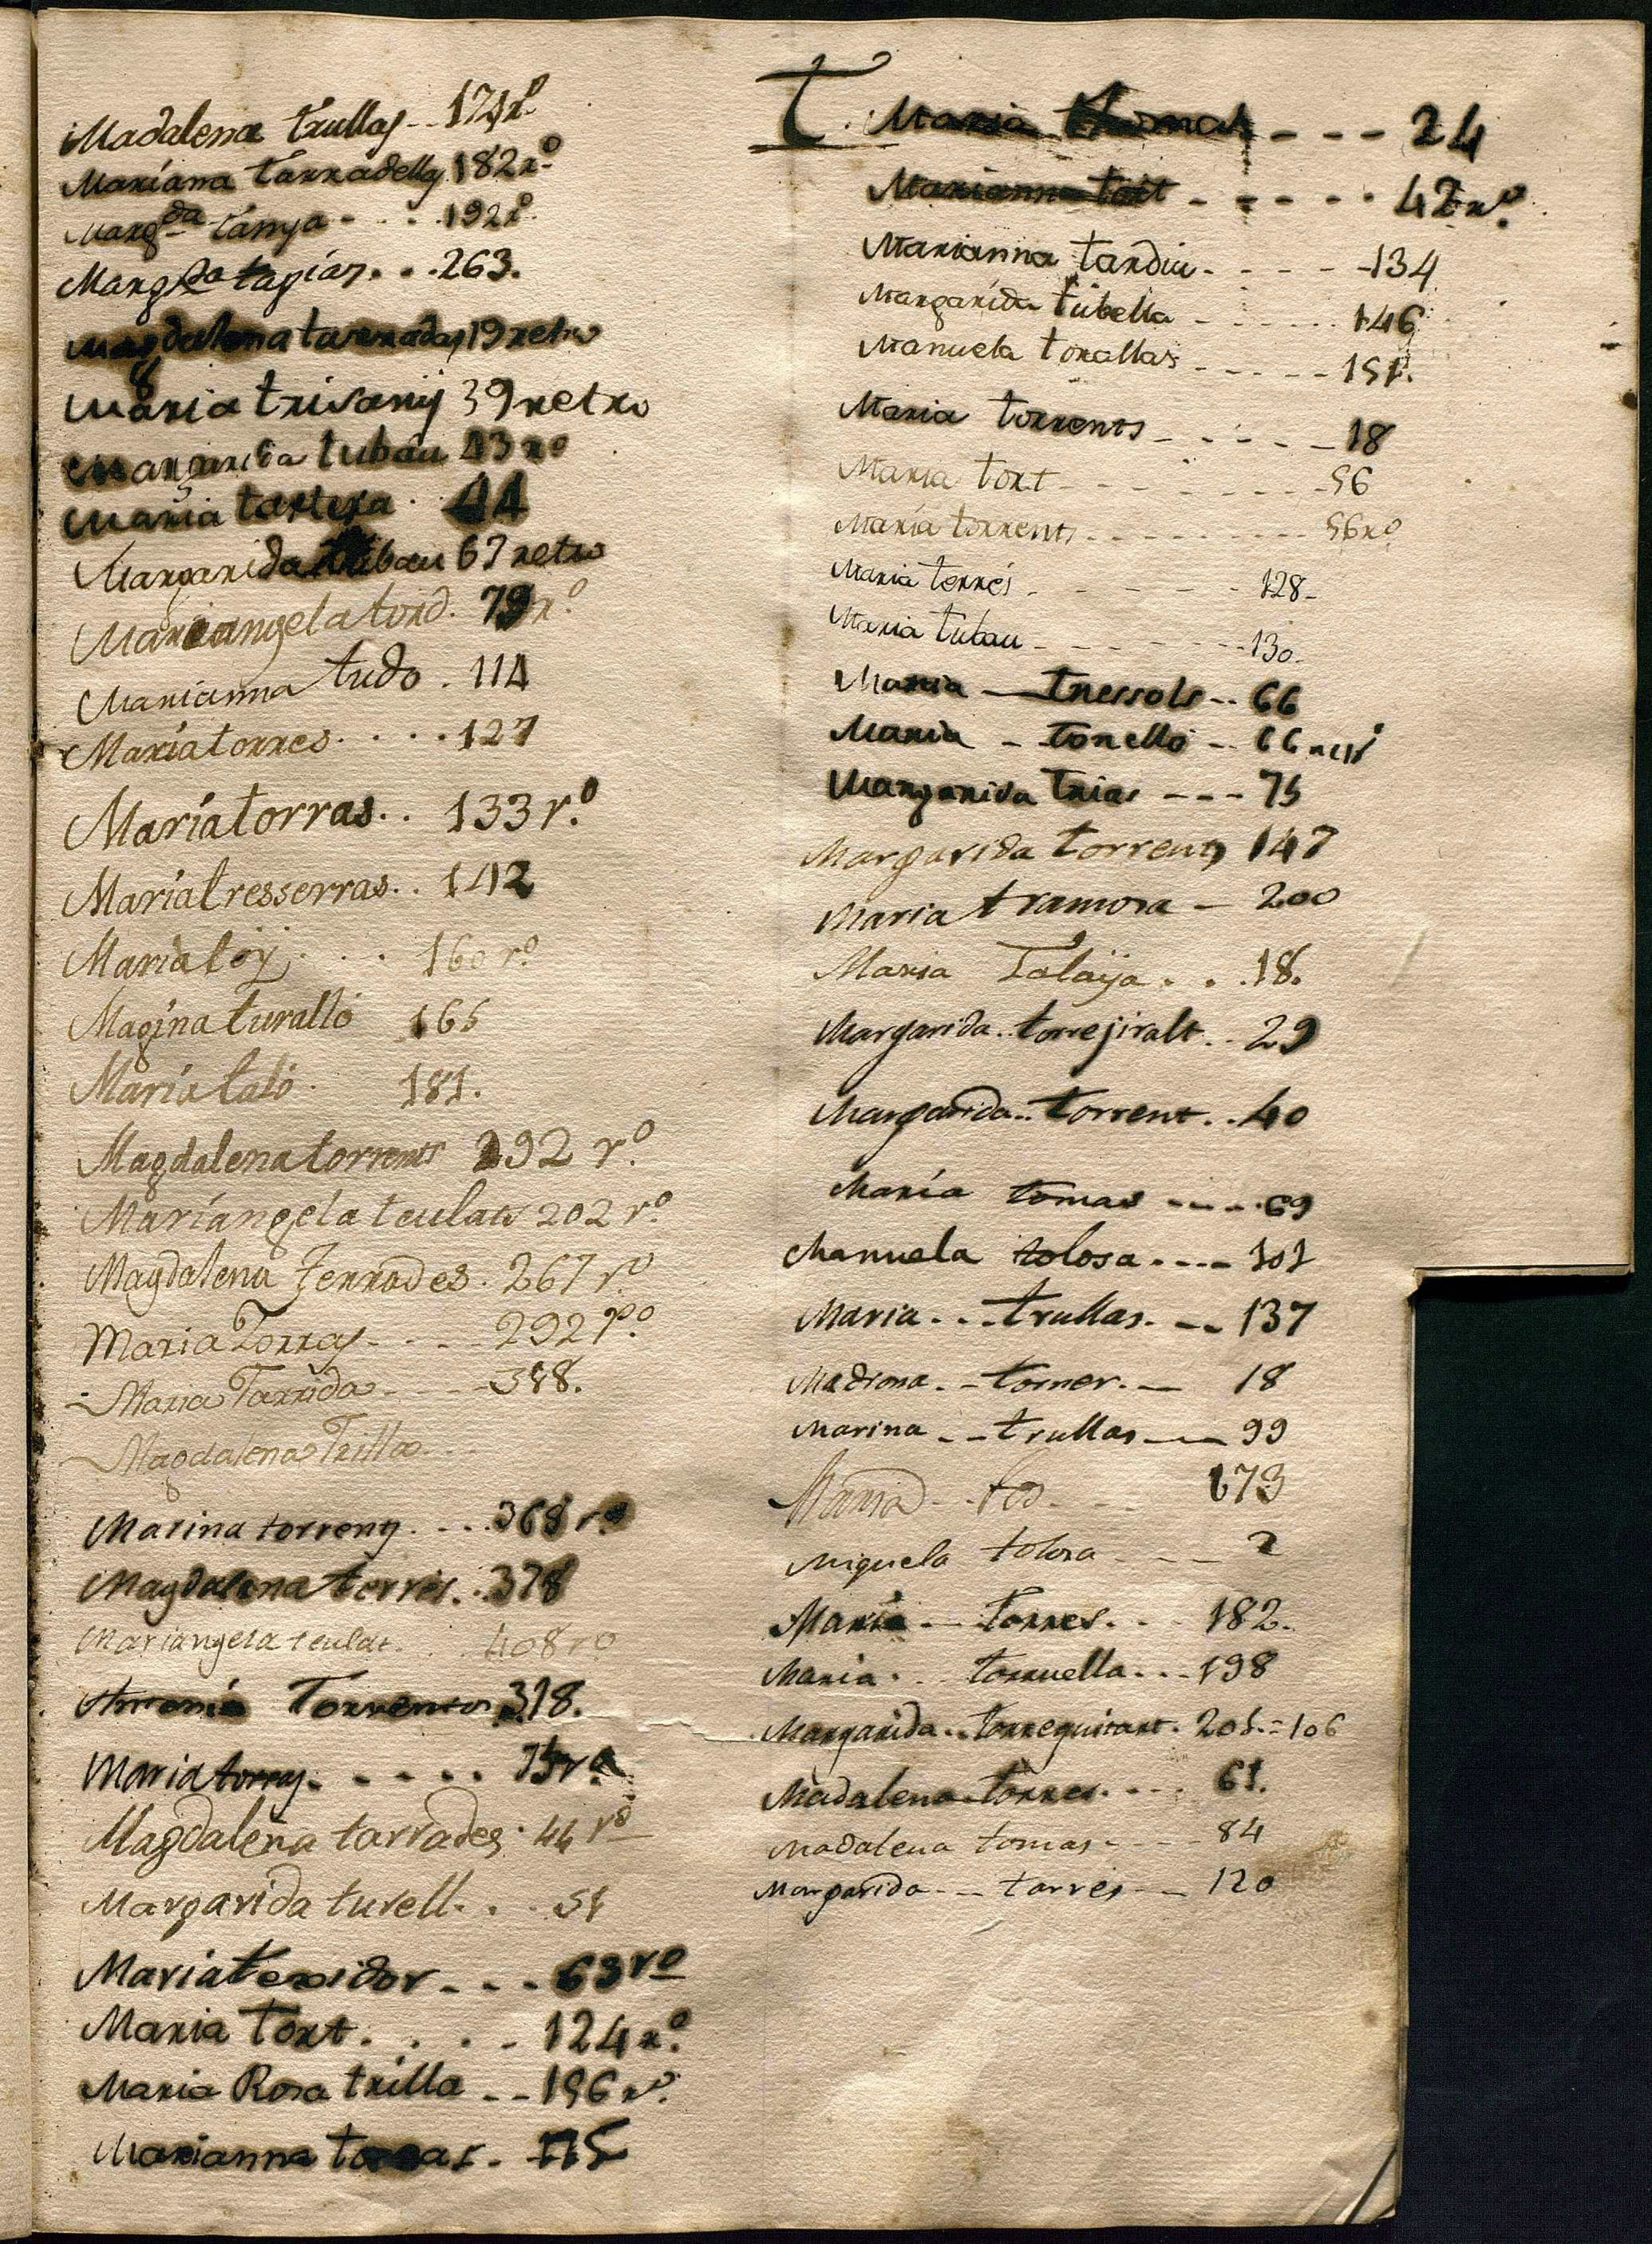 Madalena trullas - - 174 rº
Mariana tarradellas 182 rº
Margda tanya - - - 192 rº
Margda tapias . . . 263.
Magdalena tarradas 19 retro
Maria trisany 39 retro
Margarida tubau 43 rº
Maria tartera . 44
Margarida tubau 67 retro
Mariangela tord. 79 rº
Marianna tudo . 114
Maria torres . . . . 127
Maria torras . . 133 rº
Maria tresserras . . 142
Maria toy . . . 160 rº
Magina turallo 165
Maria talo . 181.
Magdalena torrents 192 rº
Mariangela teulats 202 rº
Magdalena Terrades . 267 rº
Maria Torras - - - 292 rº
Maria Tarrida - - - 388.
Magdalena Trilla - -
Marina torrents . . . 368 rº
Magdalena torres . . 378
Mariangela teulat . . 408 rº
Antonia Torrents 318.
Maria torras . - - . . 75 rº
Magdalena tarrades . 44 rº
Margarida turell . . . 51
Maria texidor - - - 63 rº
Maria Tort . . . - 124 rº
Maria Rosa trilla - - 196 rº
Marianna - 115
T. Maria - - - 24
Marianna tort - - - - . 42 rº
Marianna tardiu - - - - 134
Margarida tubella - - - . . . 146
Manuela torallas - - - - - 151.
Maria torrents - - - - - 18
Maria tort - - - - - - - - 56
Maria torrents - - - - - - - - 56 rº
Maria torres - - - - - 128 -
Maria tubau - - - - - - - 130 -
Maria - tressols - - 66
Maria - tonello - 66
Margarida trias - - - 75
Margarida torrents 147
Maria tramosa - 200
Maria Talaija . . . 18.
Margarida . . torrejiralt . . 29
Margarida . . torrent . . 40
Maria tomas - - - - 69
Manuela tolosa - - - - 101
Maria . . . trullas . - - 137
Madrona . - torner . - 18
Marina - - trullas - - 99
Maria - - - - - 173
Miquela tolosa - - - 2
Maria - Torres . - - 182.
Maria . . torruella . . . 198
Margarida . . torreguitart . 205. = 106
Madalena torres . - - - 61.
Madalena tomas - - - - 84
Margarida - - torres - - 120